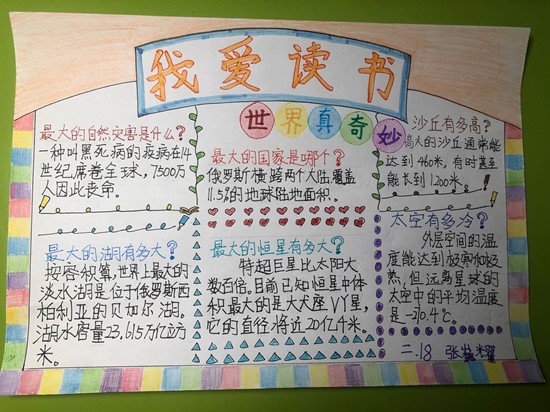 我爱读书
世界真奇妙
最大的自然灾害是什么?
一种叫黑死病的疫病在14
世纪席卷全球,7500万
人因此丧命。
最大的湖有多大?
按容积算,世界上最大的
淡水湖是位于俄罗斯西
柏利亚的贝加尔湖。
湖水容量23.615万亿立方
米。
最大的国家是哪个?
俄罗斯横跨两个大陆覆盖
11.5%的地球陆地面积。
最大的恒星有多大?
特超巨星比太阳大
数百倍。目前已知恒星中体
积最大的是大犬座VY星,
它的直径将近20亿千米。
沙丘有多高?
高大的沙丘通常能
达到460米,有时甚至
能长到1200米。
太空有多冷?
外层空间的温
度能达到极寒和极
热,但远离星球的
太空中的平均温度
是-270.4℃。
二.18 张 耀